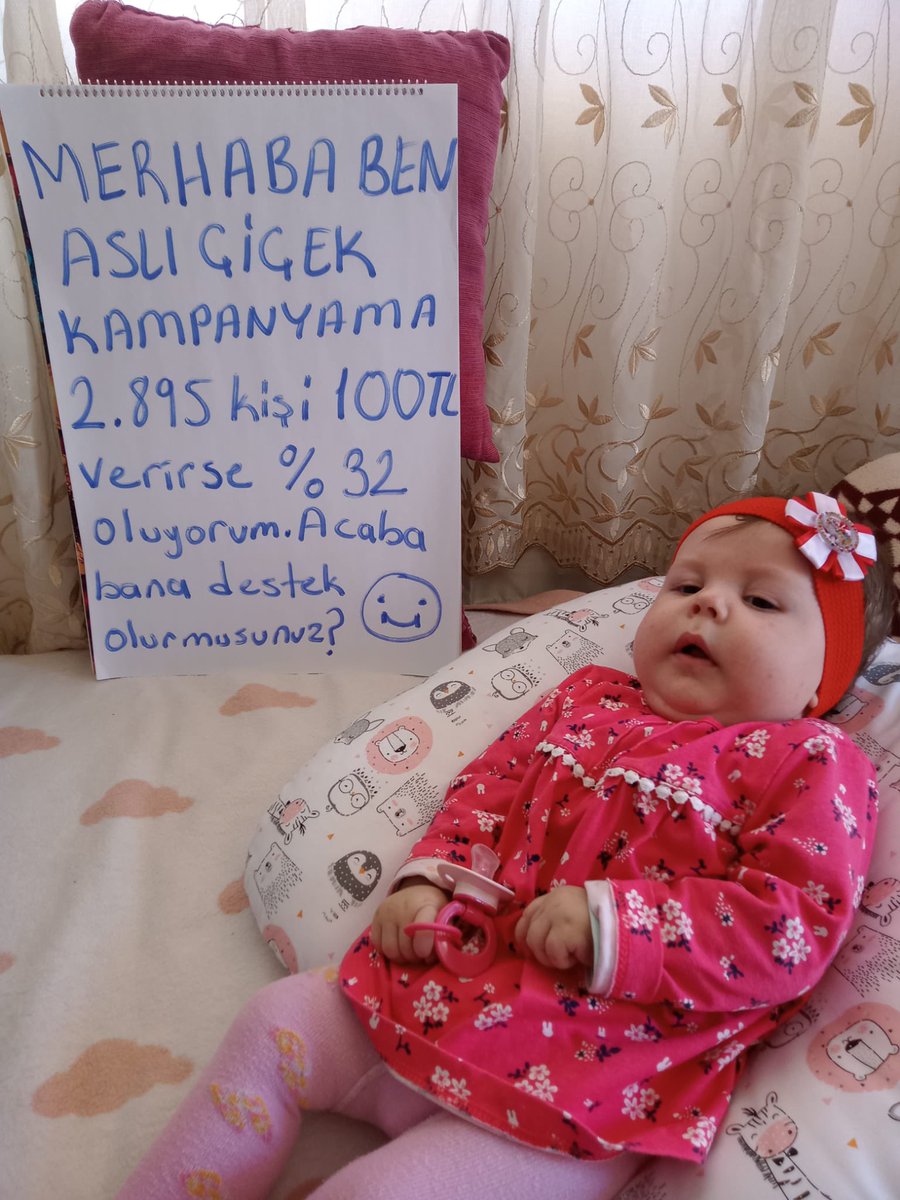 MERHABA BEN
ASLI ÇİÇEK
KAMPANYAMA
2.895 kişi 100TL
verirse % 32
oluyorum. Acaba
bana destek
olurmusunuz?